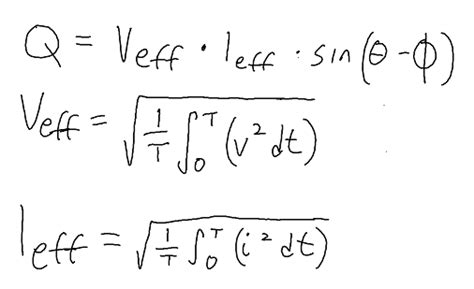 Q = Veff · Ieff · sin(θ-ϕ)
Veff = √(1/T ∫₀ᵀ (v² dt))
Ieff = √(1/T ∫₀ᵀ (i² dt))